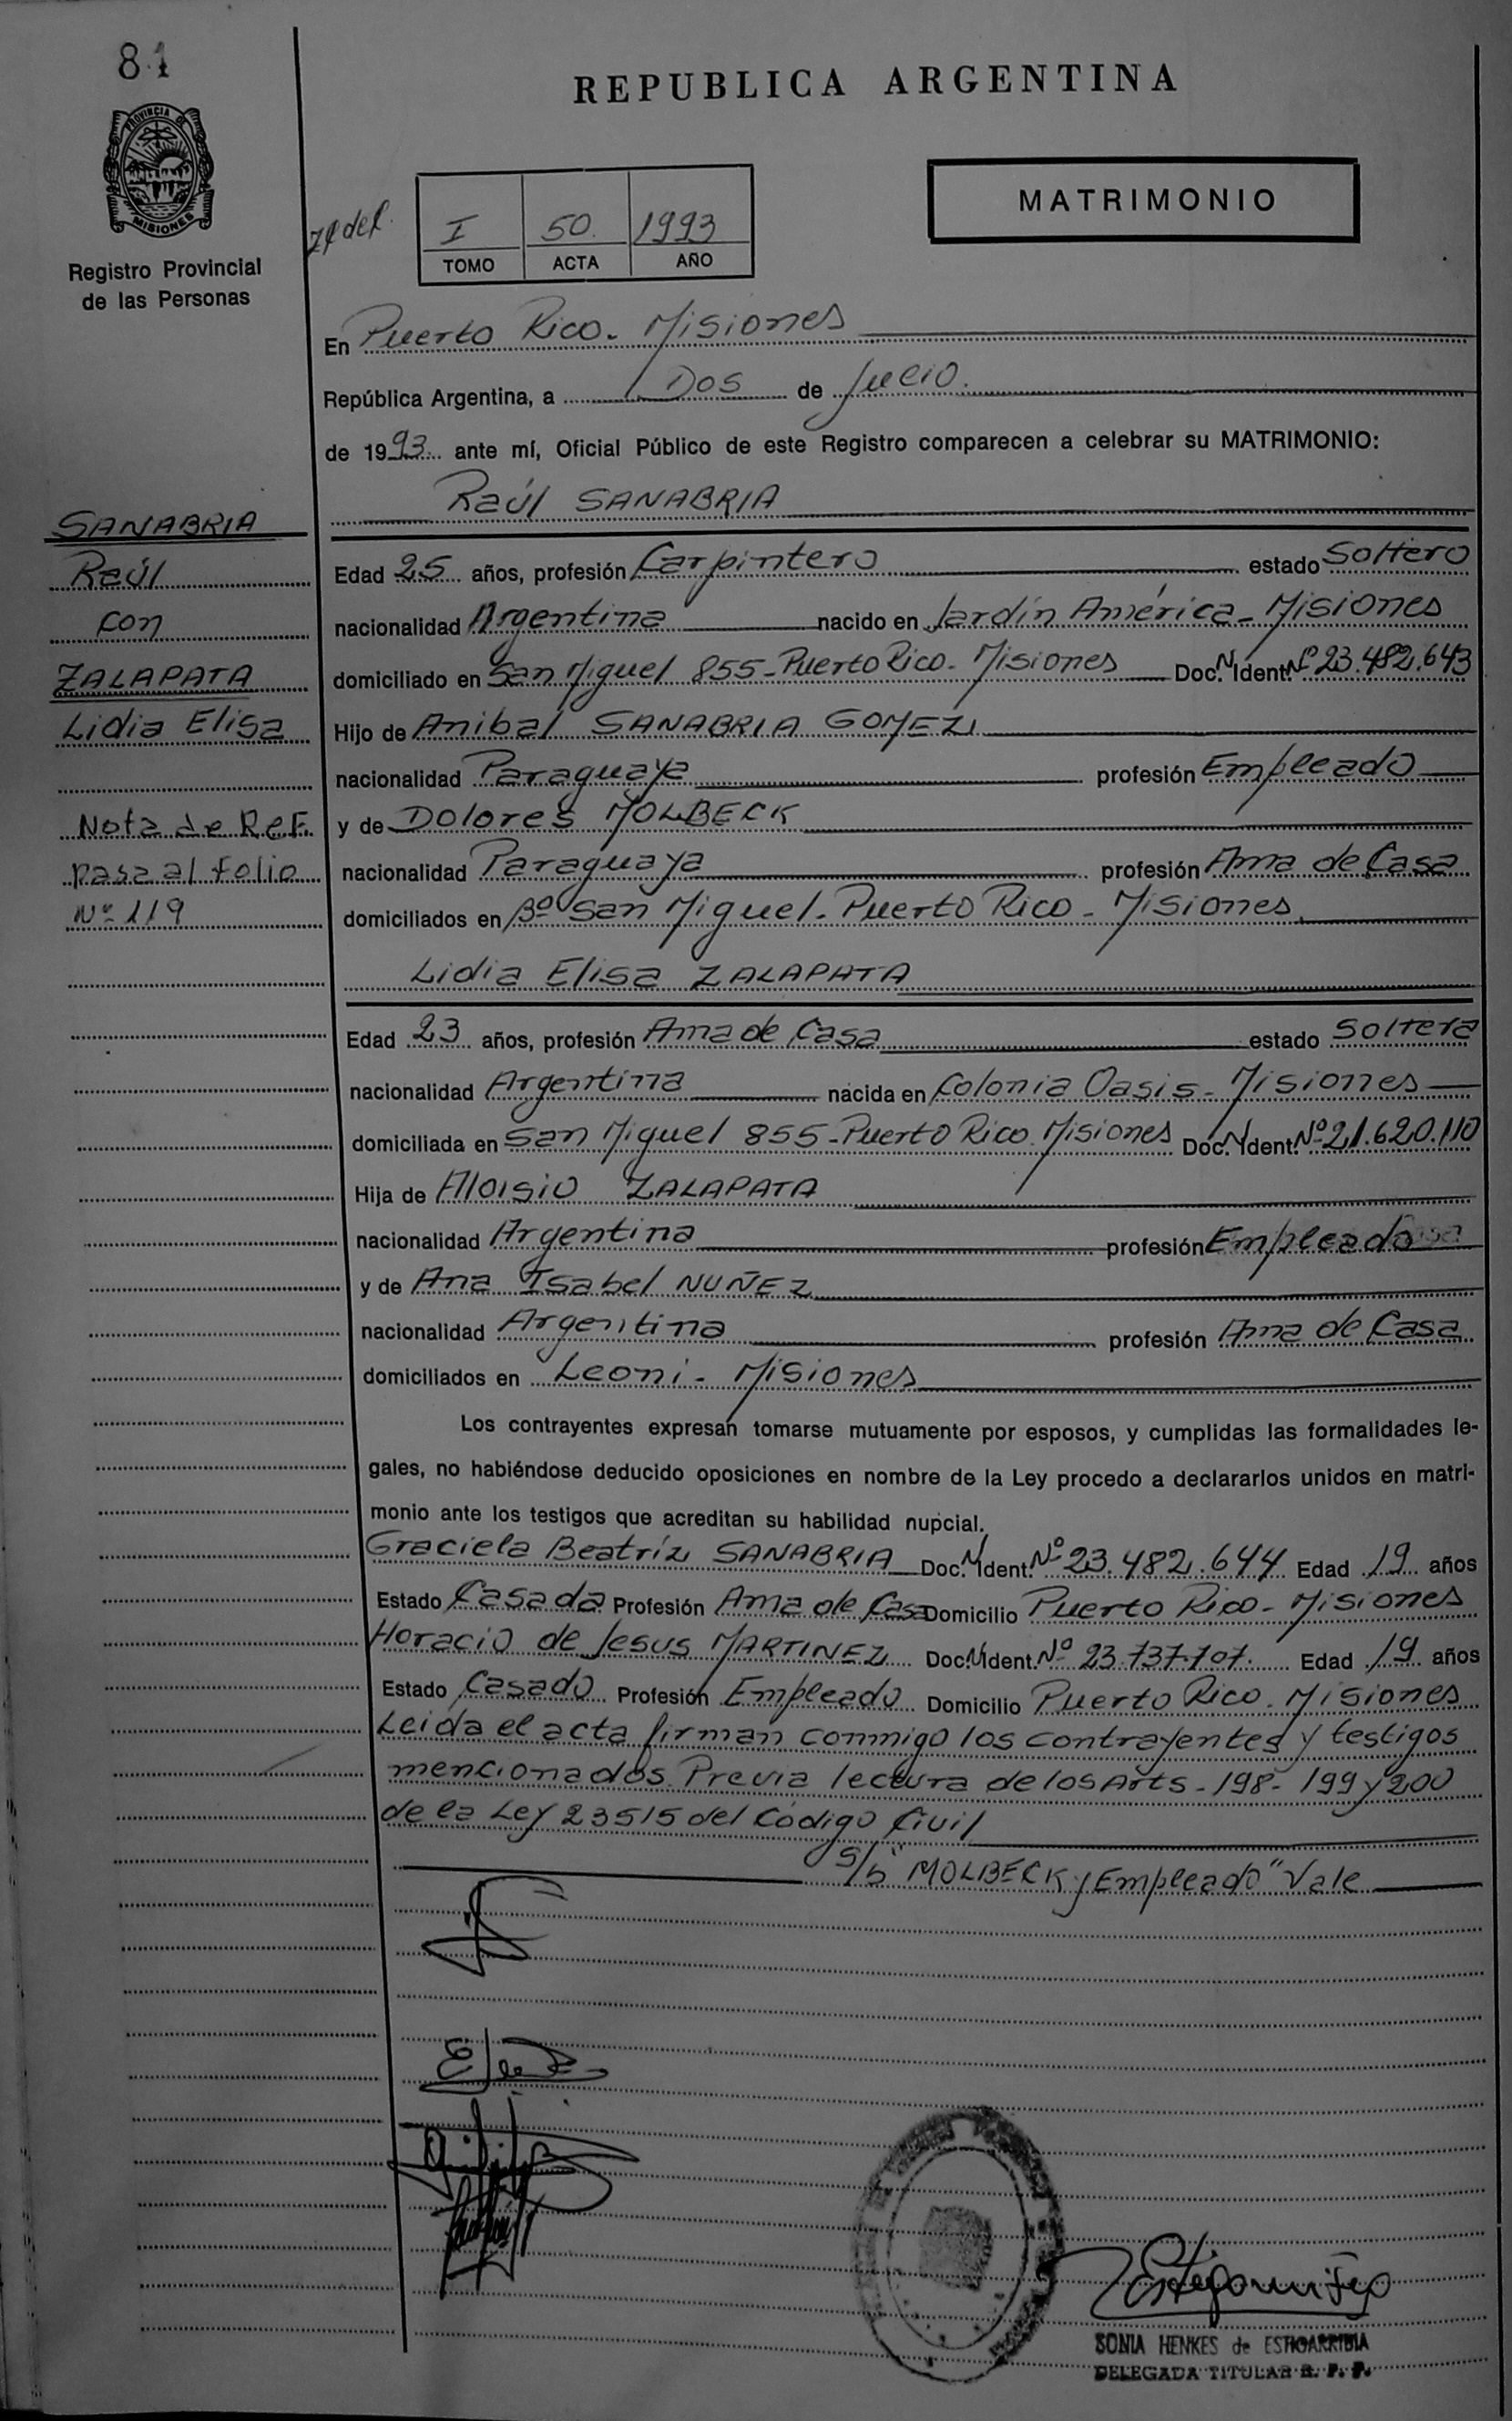 81
REPUBLICA ARGENTINA
PROVINCIA DE
MISIONES
Registro Provincial
de las Personas
I 50. 1993
TOMO ACTA AÑO
MATRIMONIO
En Puerto Rico - Misiones
República Argentina, a Dos de Julio.
de 1993. ante mí, Oficial Público de este Registro comparecen a celebrar su MATRIMONIO:
Raúl SANABRIA
SANABRIA
Raúl
con
ZALAPATA
Lidia Elisa
Nota de Ref.
pasa al Folio
Nº 119
Edad 25 años, profesión Carpintero estado Soltero
nacionalidad Argentina nacido en Jardín América - Misiones
domiciliado en San Miguel 855 - Puerto Rico - Misiones Doc. N. Ident. Nº 23.482.643
Hijo de Anibal SANABRIA GOMEZ
nacionalidad Paraguaya profesión Empleado
y de Dolores MOLBECK
nacionalidad Paraguaya profesión Ama de Casa
domiciliados en Bº San Miguel - Puerto Rico - Misiones.
Lidia Elisa ZALAPATA
Edad 23 años, profesión Ama de Casa estado Soltera
nacionalidad Argentina nacida en Colonia Oasis - Misiones
domiciliada en San Miguel 855 - Puerto Rico. Misiones Doc. N Ident. Nº 21.620.110
Hija de Aloisio ZALAPATA
nacionalidad Argentina profesión Empleado
y de Ana Isabel NUÑEZ
nacionalidad Argentina profesión Ama de Casa
domiciliados en Leoni - Misiones
Los contrayentes expresan tomarse mutuamente por esposos, y cumplidas las formalidades le-
gales, no habiéndose deducido oposiciones en nombre de la Ley procedo a declararlos unidos en matri-
monio ante los testigos que acreditan su habilidad nupcial.
Graciela Beatríz SANABRIA Doc. N Ident. Nº 23.482.644 Edad 19 años
Estado Casada Profesión Ama de Casa Domicilio Puerto Rico - Misiones
Horacio de Jesus MARTINEZ Doc. N Ident. Nº 23.737.707. Edad 19 años
Estado Casado Profesión Empleado Domicilio Puerto Rico. Misiones
Leida el acta firman conmigo los contrayentes y testigos
mencionados. Previa lectura de los Arts - 198 - 199 y 200
de la Ley 23515 del Código Civil
S/b "MOLBECK y Empleado" Vale
SONIA HENKES de ESTIGARRIBIA
DELEGADA TITULAR R. P. P.